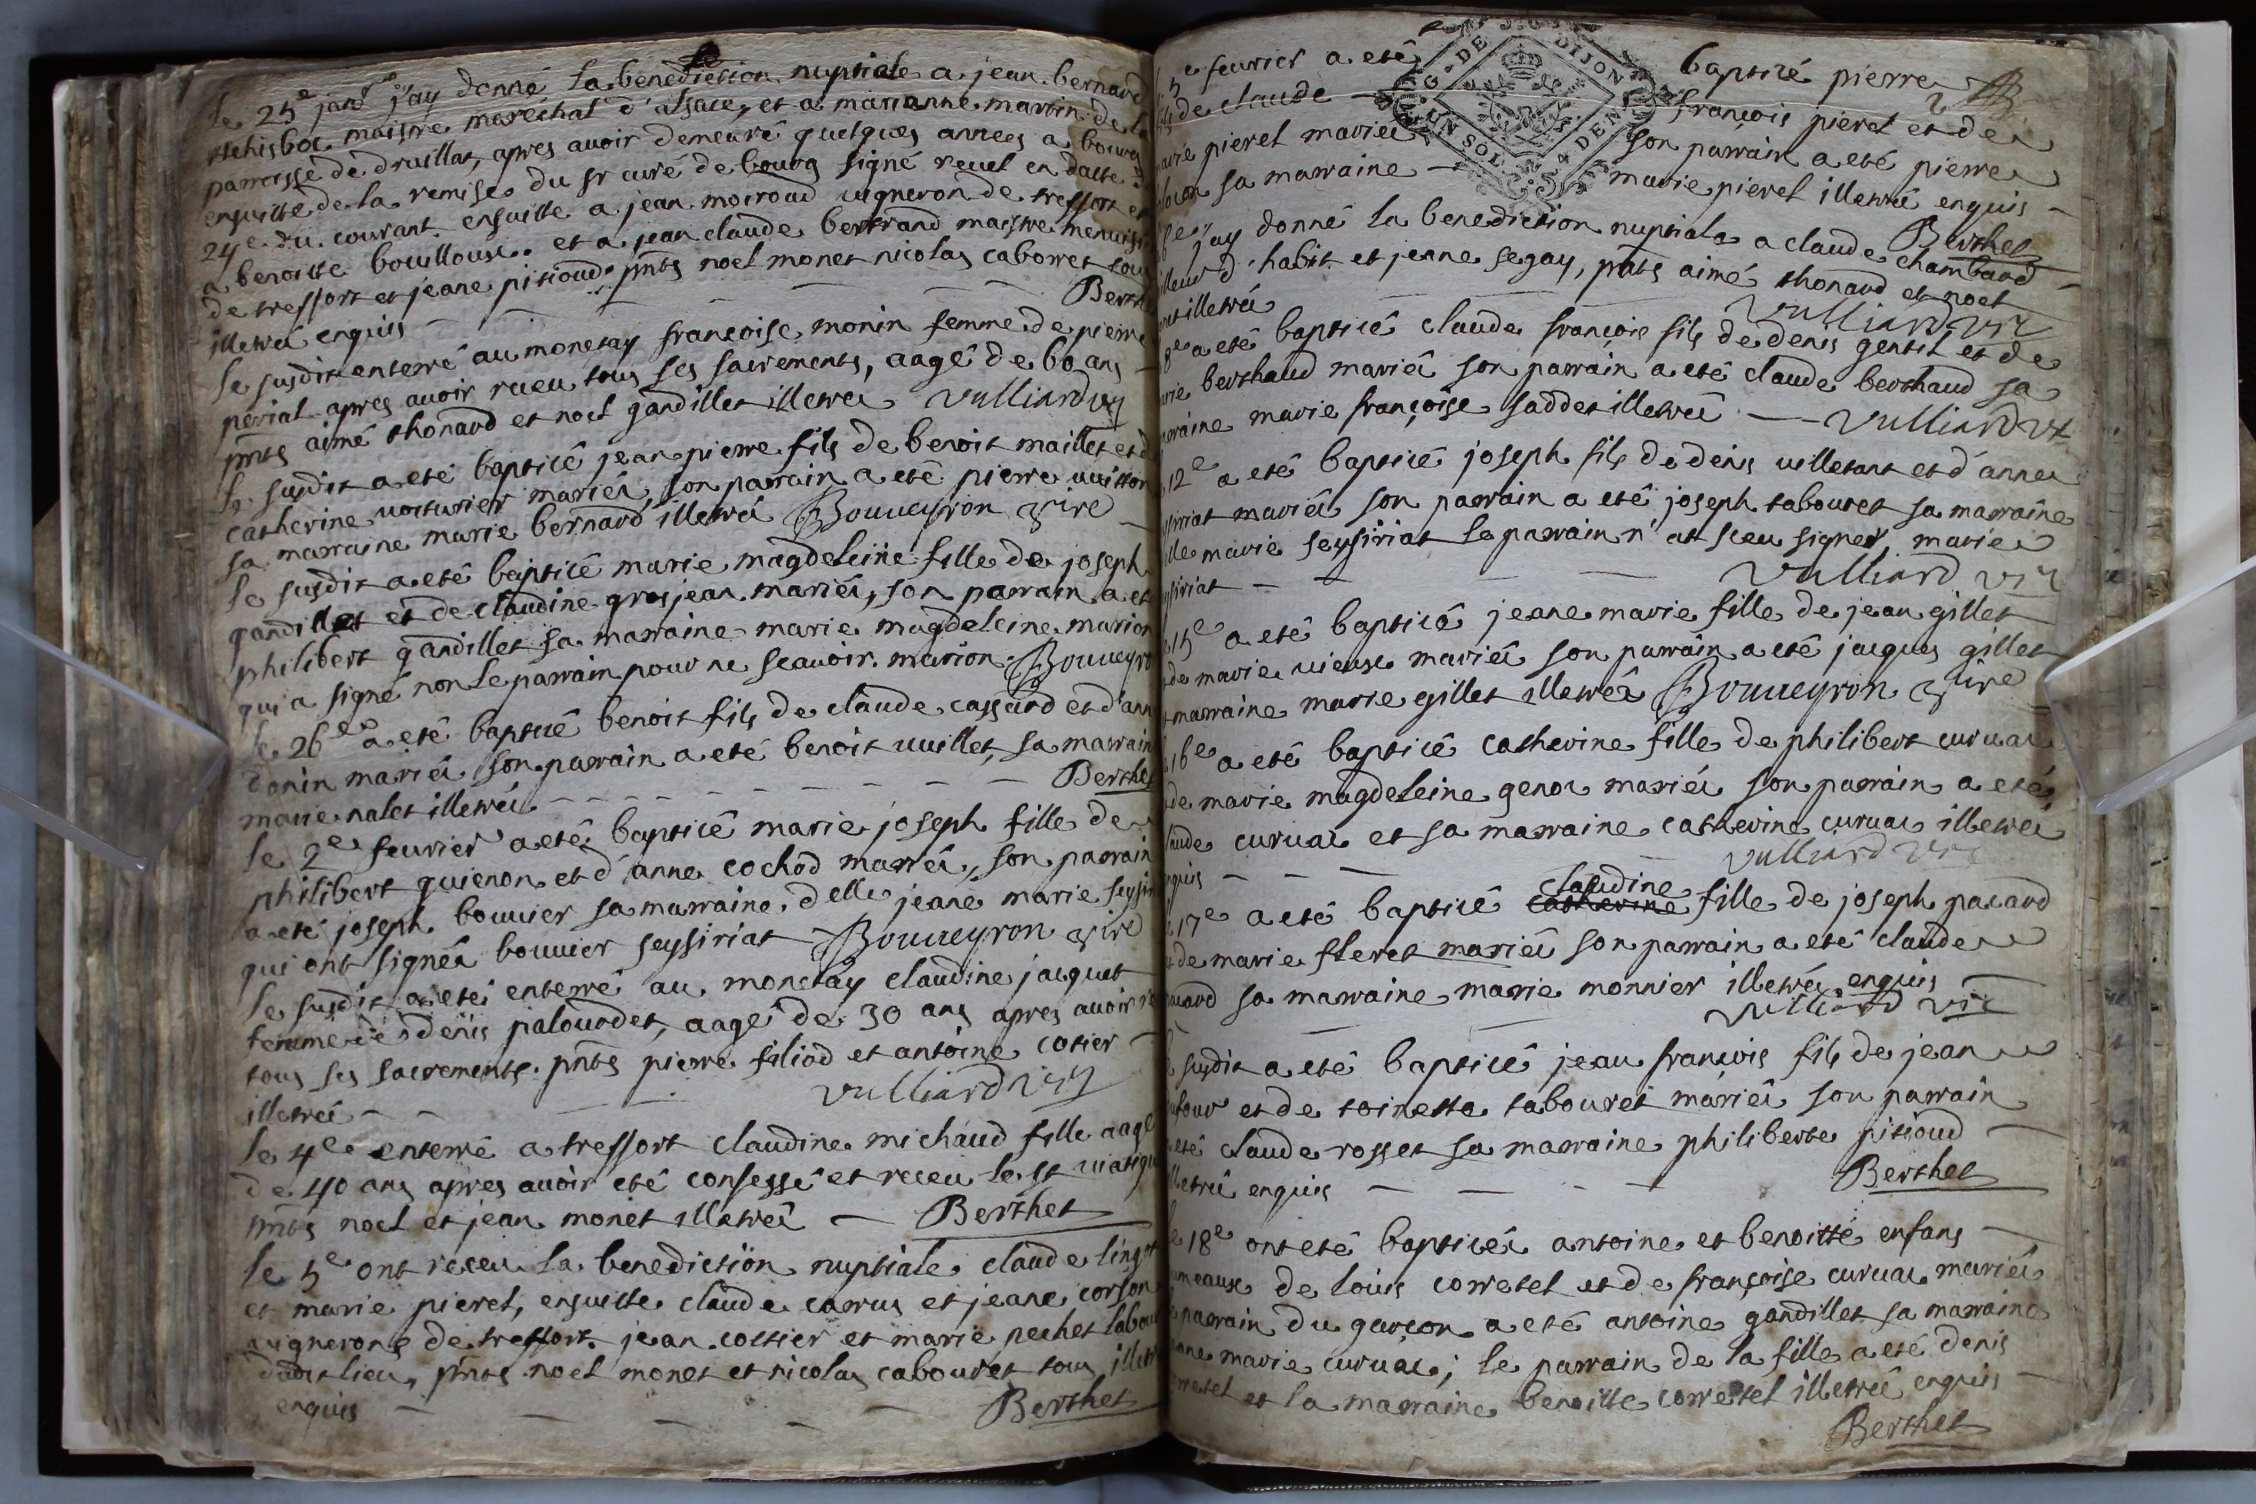 le 25e janr j'ay donné la benediction nuptiale a jean bernard
maistre marechal d'alsace, et a marianne martin de la
parroisse de druillat, apres avoir demeuré quelques annees a bourg
ensuitte de la remise du sr curé de bourg signé revel en datte du
24e du courant. ensuitte a jean moiroud vigneron de tressort et
a benoitte bouilloux. et a jean claude bertrand maistre menuisier
de tressort et jeane pitioud. pnts noel monet nicolas cabouret tous
illetrés enquis — Berthet
le susdit enterré au monetay françoise monin femme de pierre
periat apres avoir receu tous ses sacrements, aagé de 60 ans —
pnts aimé thonard et noel gandillet illetrés Vulliard vic
le susdit a eté baptisé jean pierre fils de benoit maillet et de
catherine voiturier mariés, son parrain a eté pierre vuitton
sa marraine marie bernard illetrés Bouveyron vire
le susdit a eté baptisé marie magdeleine fille de joseph
gandillet et de claudine grosjean mariés, son parrain a eté
philibert gandillet sa marraine marie magdeleine marion
qui a signé non le parrain pour ne scavoir. marion. Bouveyron
le 26e a eté baptisé benoit fils de claude cassard et d'anne
donin mariés son parrain a eté benoit vuillet, sa marraine
marie nalet illetrés — Berthet
le 2e fevrier a eté baptisé marie joseph fille de
philibert guienon et d'anne cochod mariés, son parrain
a eté joseph bouvier sa marraine delle jeane marie seysiriat
qui ont signés bouvier seysiriat — Bouveyron vire
le susdit a eté enterré au monetay claudine jacquet
femme de denis palourdet, aagé de 30 ans apres avoir receu
tous ses sacrements. pnts pierre filiod et antoine cotier —
illetrés — Vulliard vic
le 4e enterré a tressort claudine michaud fille aagé
de 40 ans apres avoir eté confessé et receu le st viatique
pnts noel et jean monet illetrés — Berthet
le 5e ont receu la benediction nuptiale claude lingot
et marie pieret, ensuitte claude carrus et jeane corson
vignerons de tressort. jean cottier et marie pechet labour
dudt lieu, pnts noel monet et nicolas cabouret tous illetrés
enquis — Berthet
le 5e fevrier a eté baptisé pierre
fils de claude — françois pieret et de
marie pieret mariés son parrain a eté pierre
sa marraine — marie pieret illetrés enquis —
Berthet
j'ay donné la benediction nuptiale a claude chambard
tailleur d'habit et jeane segay, pnts aimé thonard et noel
illetrés Vulliard vic
8e a eté baptisé claude françois fils de denis gentil et de
marie berthaud mariés son parrain a eté claude berthaud sa
marraine marie françoise saddet illetrés — Vulliard vic
12e a eté baptisé joseph fils de denis villetant et d'anne
seysiriat mariés son parrain a eté joseph tabouret sa marraine
delle marie seysiriat le parrain n'at sceu signer marie
seysiriat — Vulliard vic
15e a eté baptisé jeane marie fille de jean gillet
et de marie vieux mariés son parrain a eté jacques gillet
sa marraine marie gillet illetrés Bouveyron vire
16e a eté baptisé catherine fille de philibert curvac
et de marie magdeleine genou mariés son parrain a eté
claude curvac et sa marraine catherine curvac illetrés
enquis — Vulliard vic
17e a eté baptisé catherine claudine fille de joseph pacard
et de marie fleret mariés son parrain a eté claude
pacard sa marraine marie monnier illetrés enquis —
Vulliard vic
le susdit a eté baptisé jean françois fils de jean
dufour et de toinette tabouret mariés son parrain
a eté claude rosset sa marraine philiberte pitioud —
illetrés enquis — Berthet
le 18e ont eté baptisés antoine et benoitte enfans —
jumeaux de louis corretel et de françoise curvac mariés
le parrain du garçon a eté antoine gandillet sa marraine
marie curvac; le parrain de la fille a eté denis
corretel et la marraine benoitte corretel illetrés enquis —
Berthet
G. DE DIJON
UN SOL 4 DEN